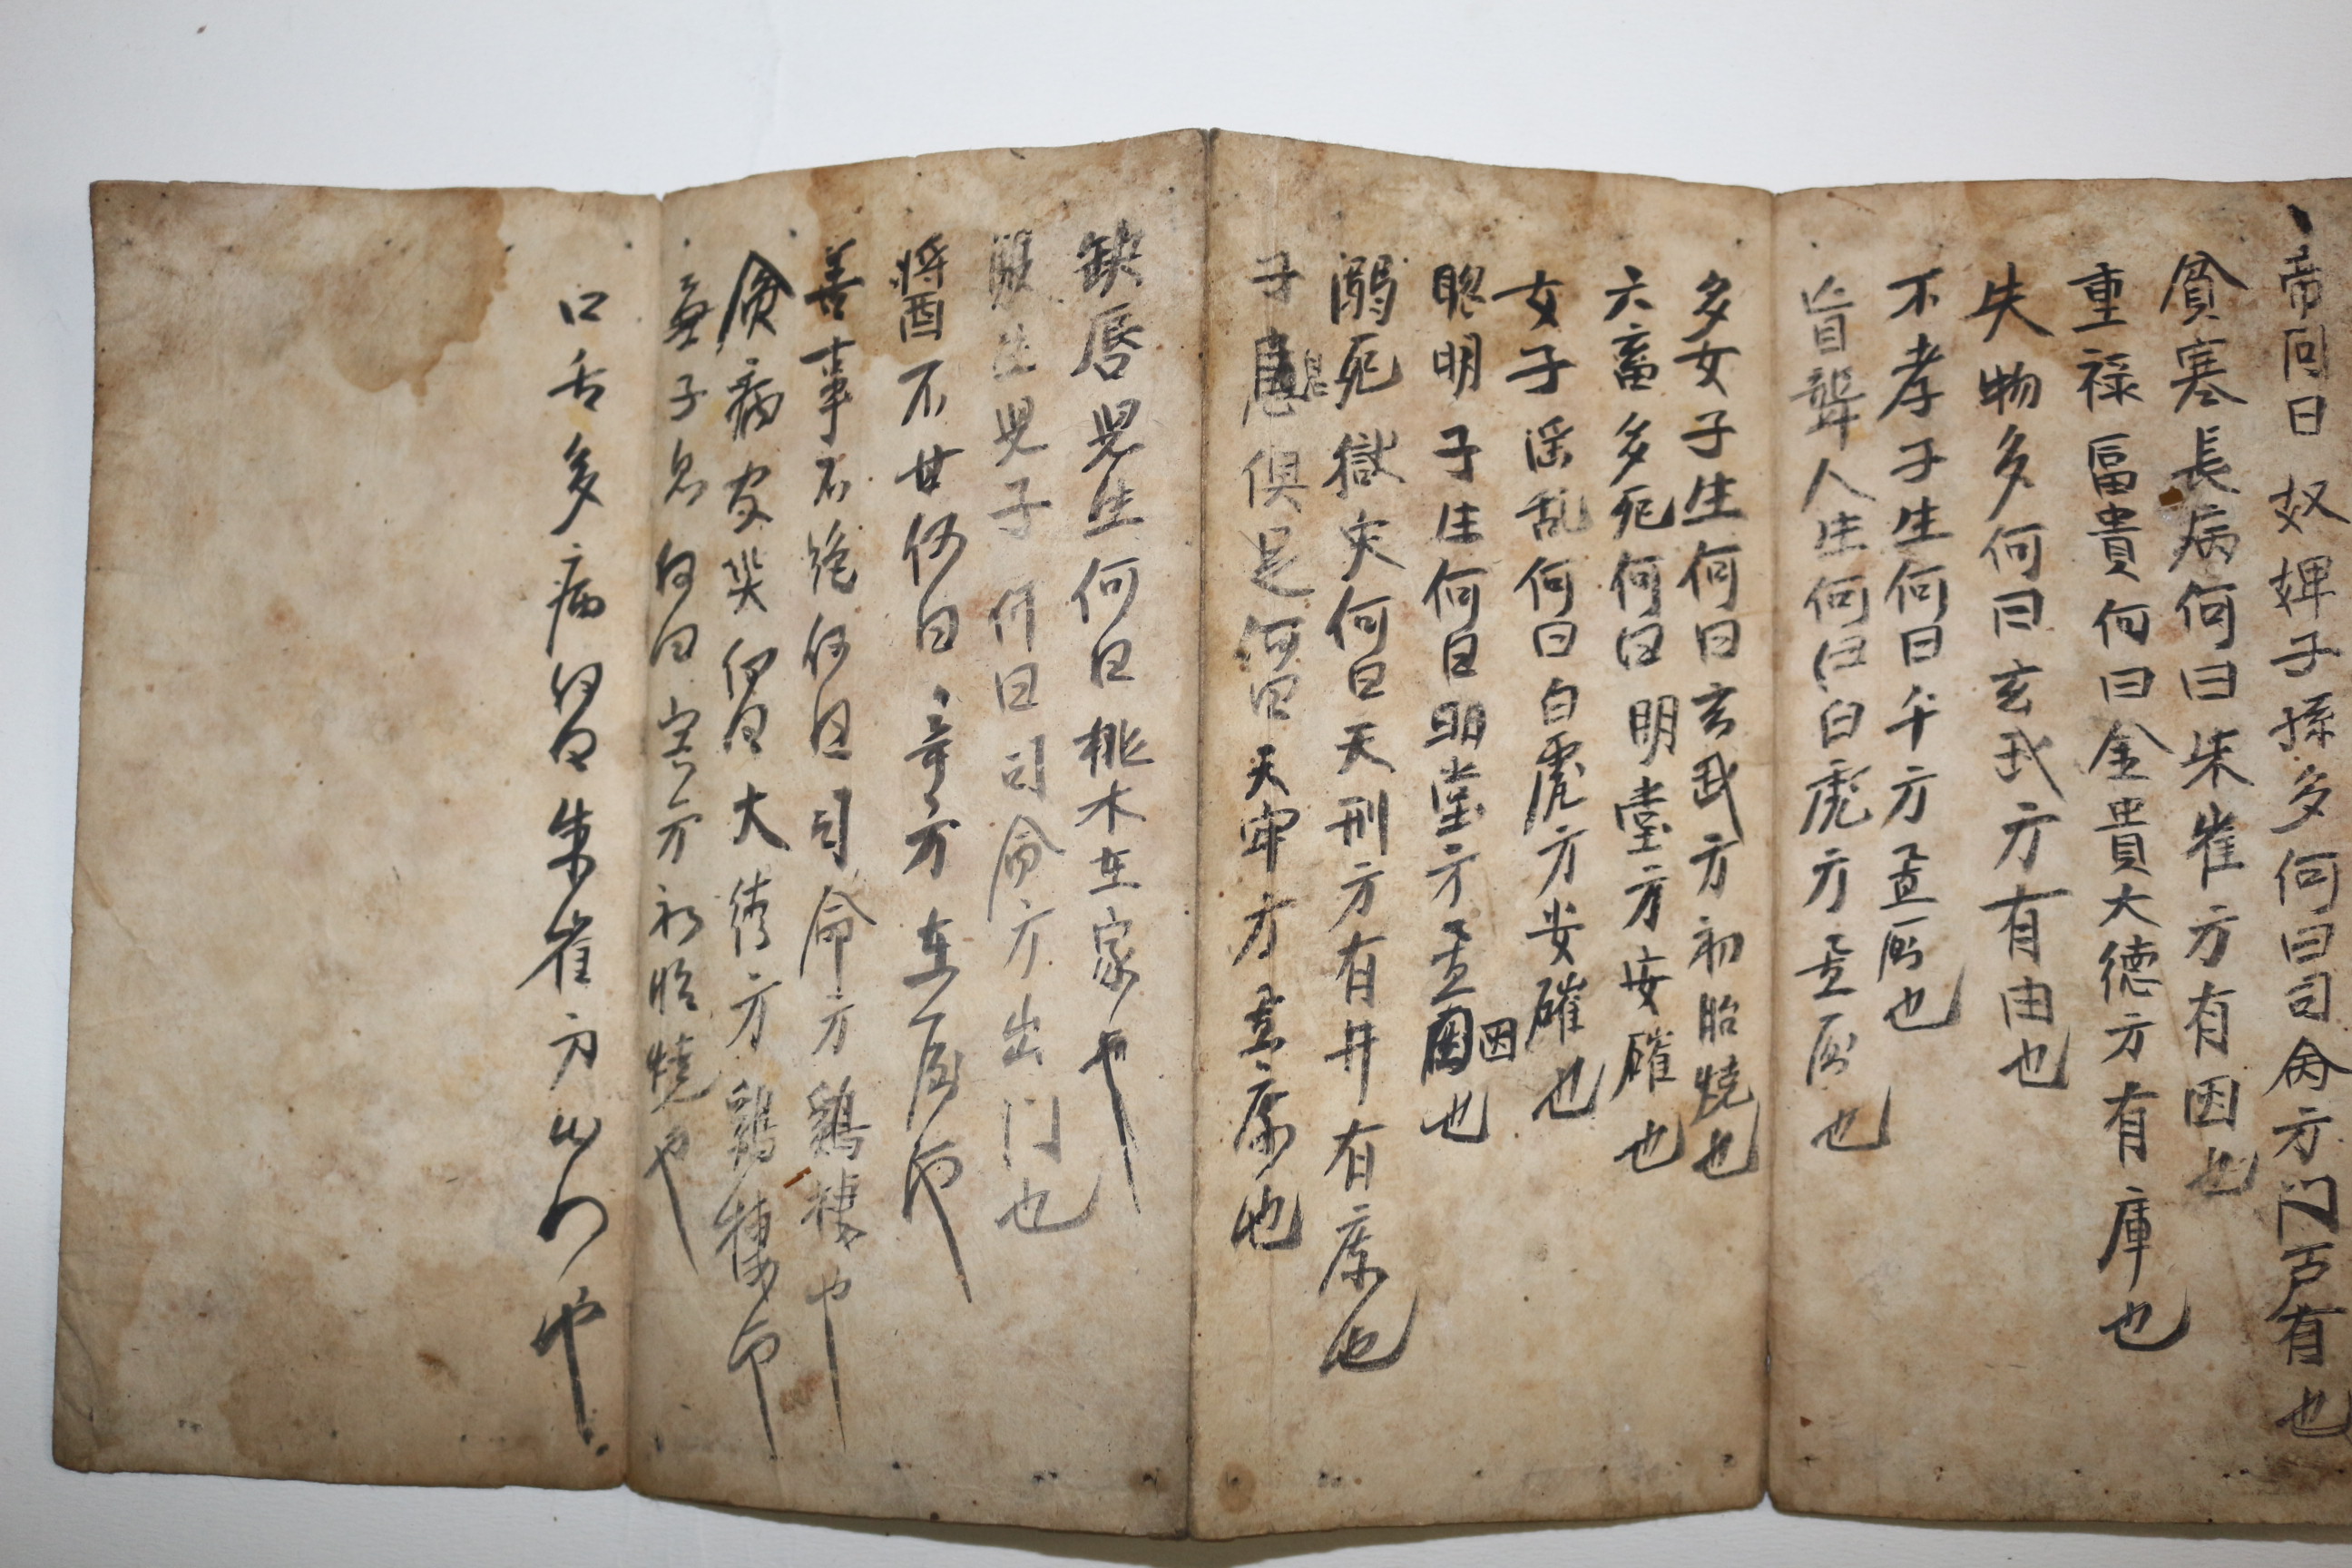 帝問曰奴婢子孫多何曰司命方門戶有也
貧寒長病何曰朱雀方有因也
重祿冨貴何曰金貴大德方有庫也
失物多何曰玄武方有由也
不孝子生何曰牢方置厠也
盲聾人生何曰白虎方置厠也
多女子生何曰玄武方初胎燒也
六畜多死何曰明堂方安碓也
女子滛乱何曰白虎方安碓也
聡明子生何曰明堂方置囷囷也
溺死獄灾何曰天刑方有井有庫也
子息俱足何曰天牢方置庫也
缺唇児生何曰桃木在家也
生児子何曰司命方出门也
將酉不甘何曰章方在厠也
善事不絶何曰司命方鷄棲也
貧病哭何曰大徳方鷄棲也
無子息何曰害方初胎燒也
口舌多病何曰朱雀方出门也